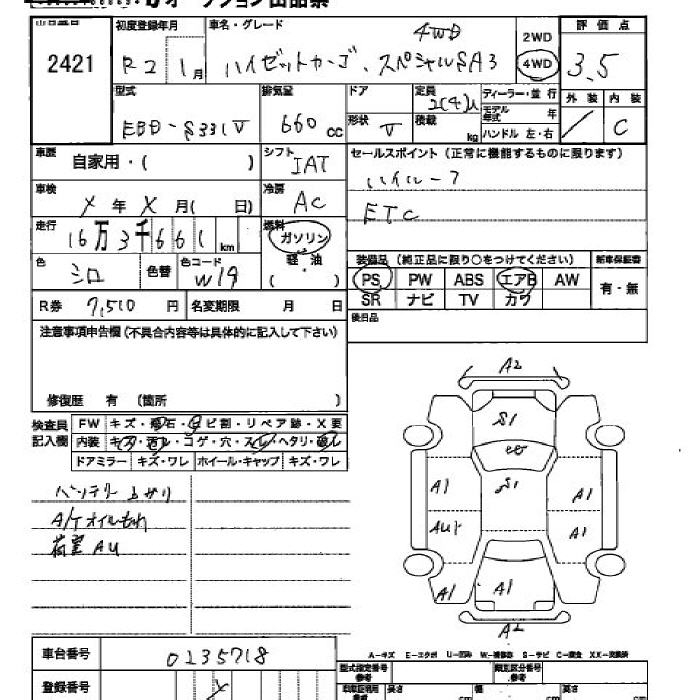 オークション出品票
初度登録年月 車名・グレード 4WD 2WD 評価点
2421 R2 1月 ハイゼットカーゴ、スペシャルSA3 4WD 3.5
型式 排気量 ドア 定員 2(4)人 ディーラー・並行 外装 内装
EBD-S331V 660cc 形状 V 積載 kg モデル年式 年 ハンドル 左・右 / C
車歴 自家用・( ) シフト IAT セールスポイント(正常に機能するものに限ります)
車検 X年X月( 日) 冷房 AC ハイルーフ
ETC
走行 16万3千661km 燃料 ガソリン
軽油
( )
装備品(純正品に限り○をつけてください) 新車保証書
色 シロ 色替 色コード W19 PS PW ABS エアB AW 有・無
R券 7,510円 名変期限 月 日 SR ナビ TV カワ
注意事項申告欄(不具合内容等は具体的に記入して下さい) 後日品
修復歴 有 (箇所 )
検査員 FW キズ・飛石・ヒビ割・リペア跡・X要
記入欄 内装 キズ・汚レ・コゲ・穴・スレ・ヘタリ・破レ
ドアミラー キズ・ワレ ホイール・キャップ キズ・ワレ
バッテリー上がり
A/Tオイルもれ
荷室AU
A2
S1
S1
A1 A1
AU1 A1
A1 A1
A2
A-キズ E-エクボ U-凹み W-補修跡 S-サビ C-腐食 XX-交換済
車台番号 0235718
登録番号 X
型式指定番号 参考 類別区分番号 参考
長さ 幅 高さ